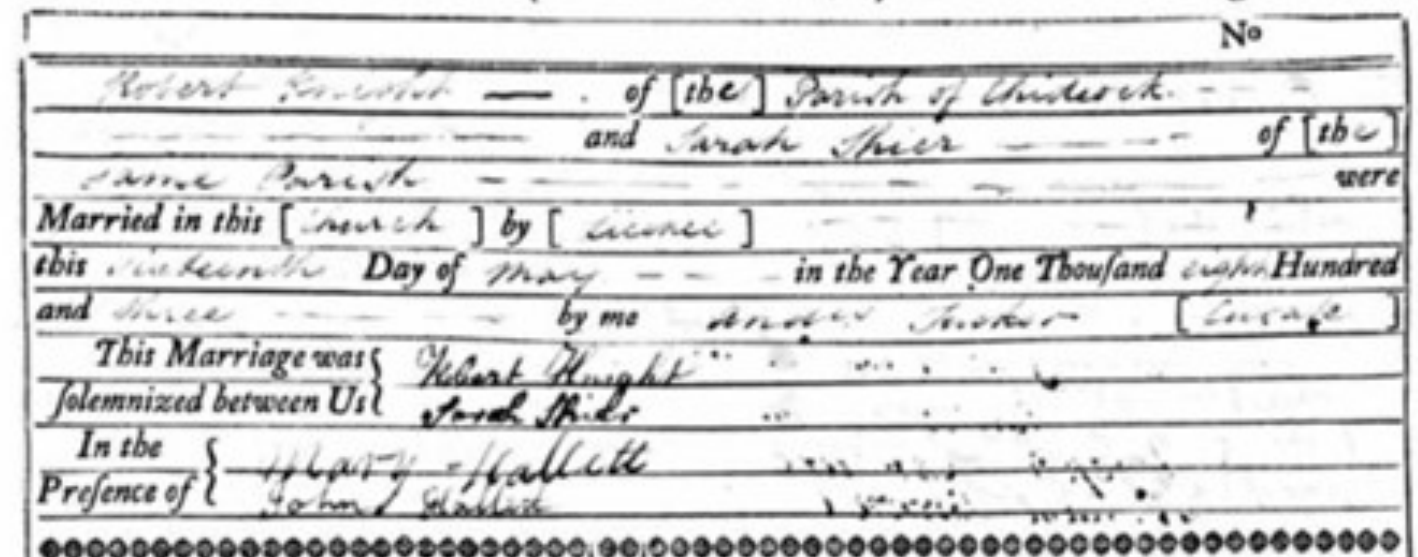 No
Robert Knight of [the] Parish of Chideock
and Sarah Shier of [the
same Parish were
Married in this [Church] by [Licence]
this sixteenth Day of May in the Year One Thouſand eight Hundred
and three by me Tucker [Curate]
This Marriage was Robert Knight
ſolemnized between Us Sarah
In the Mary Hallett
Preſence of John Hallett